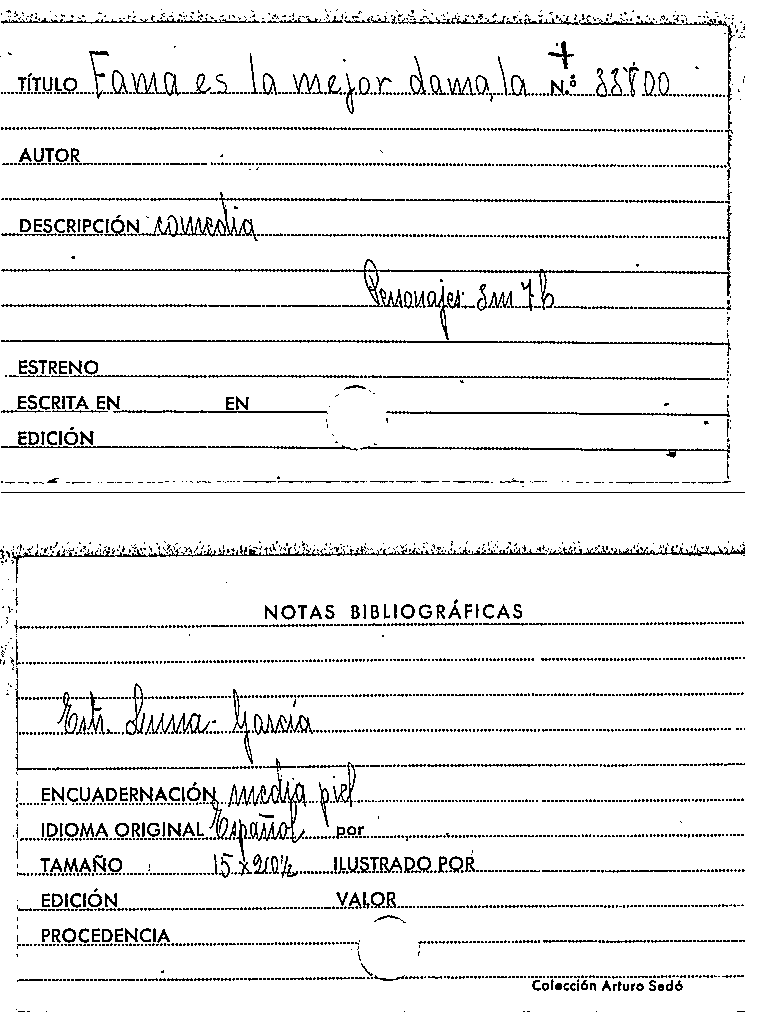 TÍTULO Fama es la mejor dama, la N.º 33800
AUTOR
DESCRIPCIÓN comedia
Personajes: 3m 7h
ESTRENO
ESCRITA EN EN
EDICIÓN
NOTAS BIBLIOGRÁFICAS
García
ENCUADERNACIÓN media piel
IDIOMA ORIGINAL Español por
TAMAÑO 15 x 20½ ILUSTRADO POR
EDICIÓN VALOR
PROCEDENCIA
Colección Arturo Sedó